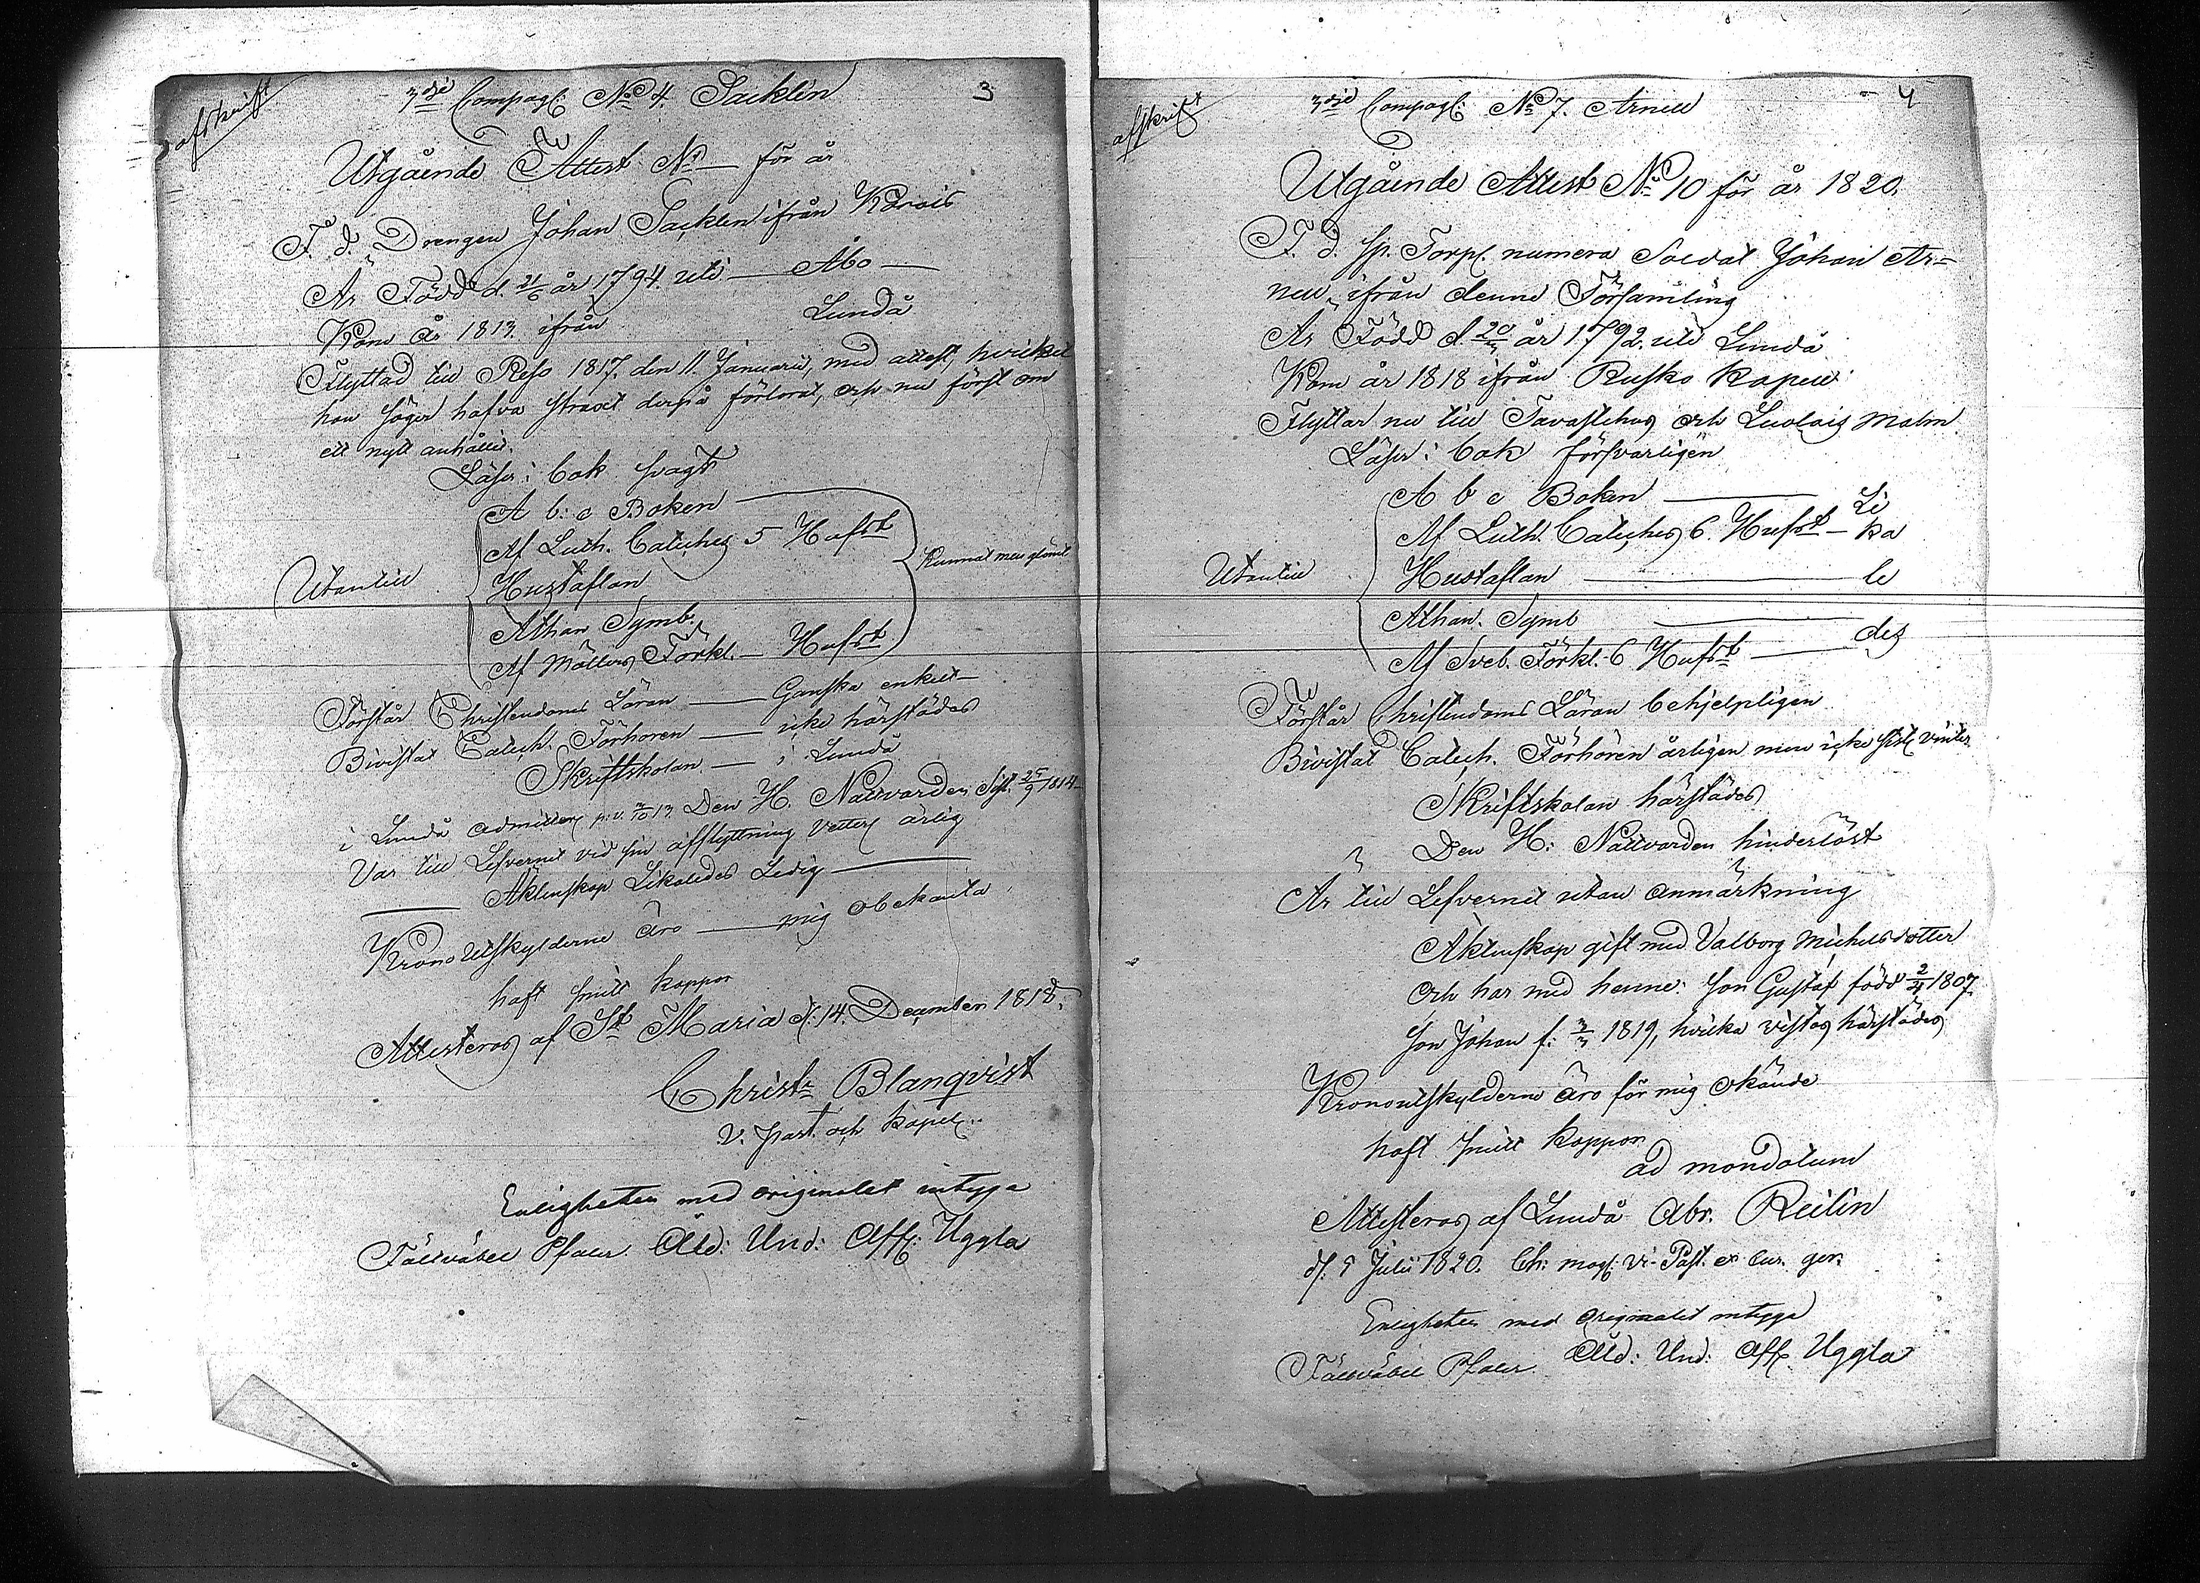 afskrift
3dje Compagt: No 4. Sacklin
3
Utgående Attest No — för år
F. d. Drengen Johan Sacklin ifrån Kärois
Är Född d. 21/6 år 1794. uti — Åbo —
Kom år 1813. ifrån Lundå
Flyttad till Reso 1817. den 11. Januarii, med attest, hvilket
han säger hafva straxt derpå förlorat, och nu först om
ett nytt anhållit.
Läser i bok svagt
A b: c Boken —
Af Luth. Cateches 5 Hufst
Utantill
Hustaflan
Kunnat men glömt
Athan Symb.
Af Möllers Förkl. — Hufst
Förstår Christendoms Läran — Ganska enkelt
Bivistat Catech. Förhören — icke härstädes
Skriftskolan — i Lundå
i Lundå admitterj p: v. 3/10 13. Den H. Nattvarden Sist. 25/9 1814
Var till Lefvernet vid sin afflyttning Vetterl ärlig
— Äktenskap Likaledes Ledig —
Krono Utskylderne äro — mig obekanta
haft smitt koppor
Attesteras af St Maria d. 14. December 1818.
Christ: Blanqvist
V. past. och kapel.
Enligheten med originalet intyga
Fältväbel Pfaler. Åld: Und: Aff: Uggla
afskrift
3dje Compagt: No 7. Arnell
4
Utgående Attest No 10 för år 1820.
F. d. sp. Torp. numera Soldat Johan Ar-
nell, ifrån denne Församling
Är Född d 20/3 år 1792. uti Lundå
Kom år 1818 ifrån Rusko Kapell
Flyttar nu till Tavastehus och Luolais Malm
Läser i bok försvarligen
A b c Boken — Li
Af Luth. Cateches 6. Hufst — ka
Utantill
Hustaflan — le
Athan. Symb —
Af Sveb. Förkl. 6 Hufst — des
Förstår Christendoms Läran behjelpligen
Bivistat Catech. Förhören årligen men icke sistl. vinter
Skriftskolan härstädes
Den H: Nattvarden hinderlöst
Är till Lefvernet utan anmärkning
Äktenskap gift med Valborg Michelsdotter
och har med henne: Son Gustaf född 2/4 1807
Son Johan f: 3/3 1819, hvilka vistas härstädes
Kronoutskylderne äro för mig okände
haft smitt koppor
ad mandatum
Attesteras af Lundå Abr. Reilin
d. 5 Julii 1820. Ch: mag: Vi-Past. et Cur. ger.
Enligheten med originalet intyga
Fältväbel Pfaler. Åld: Und: Aff. Uggla